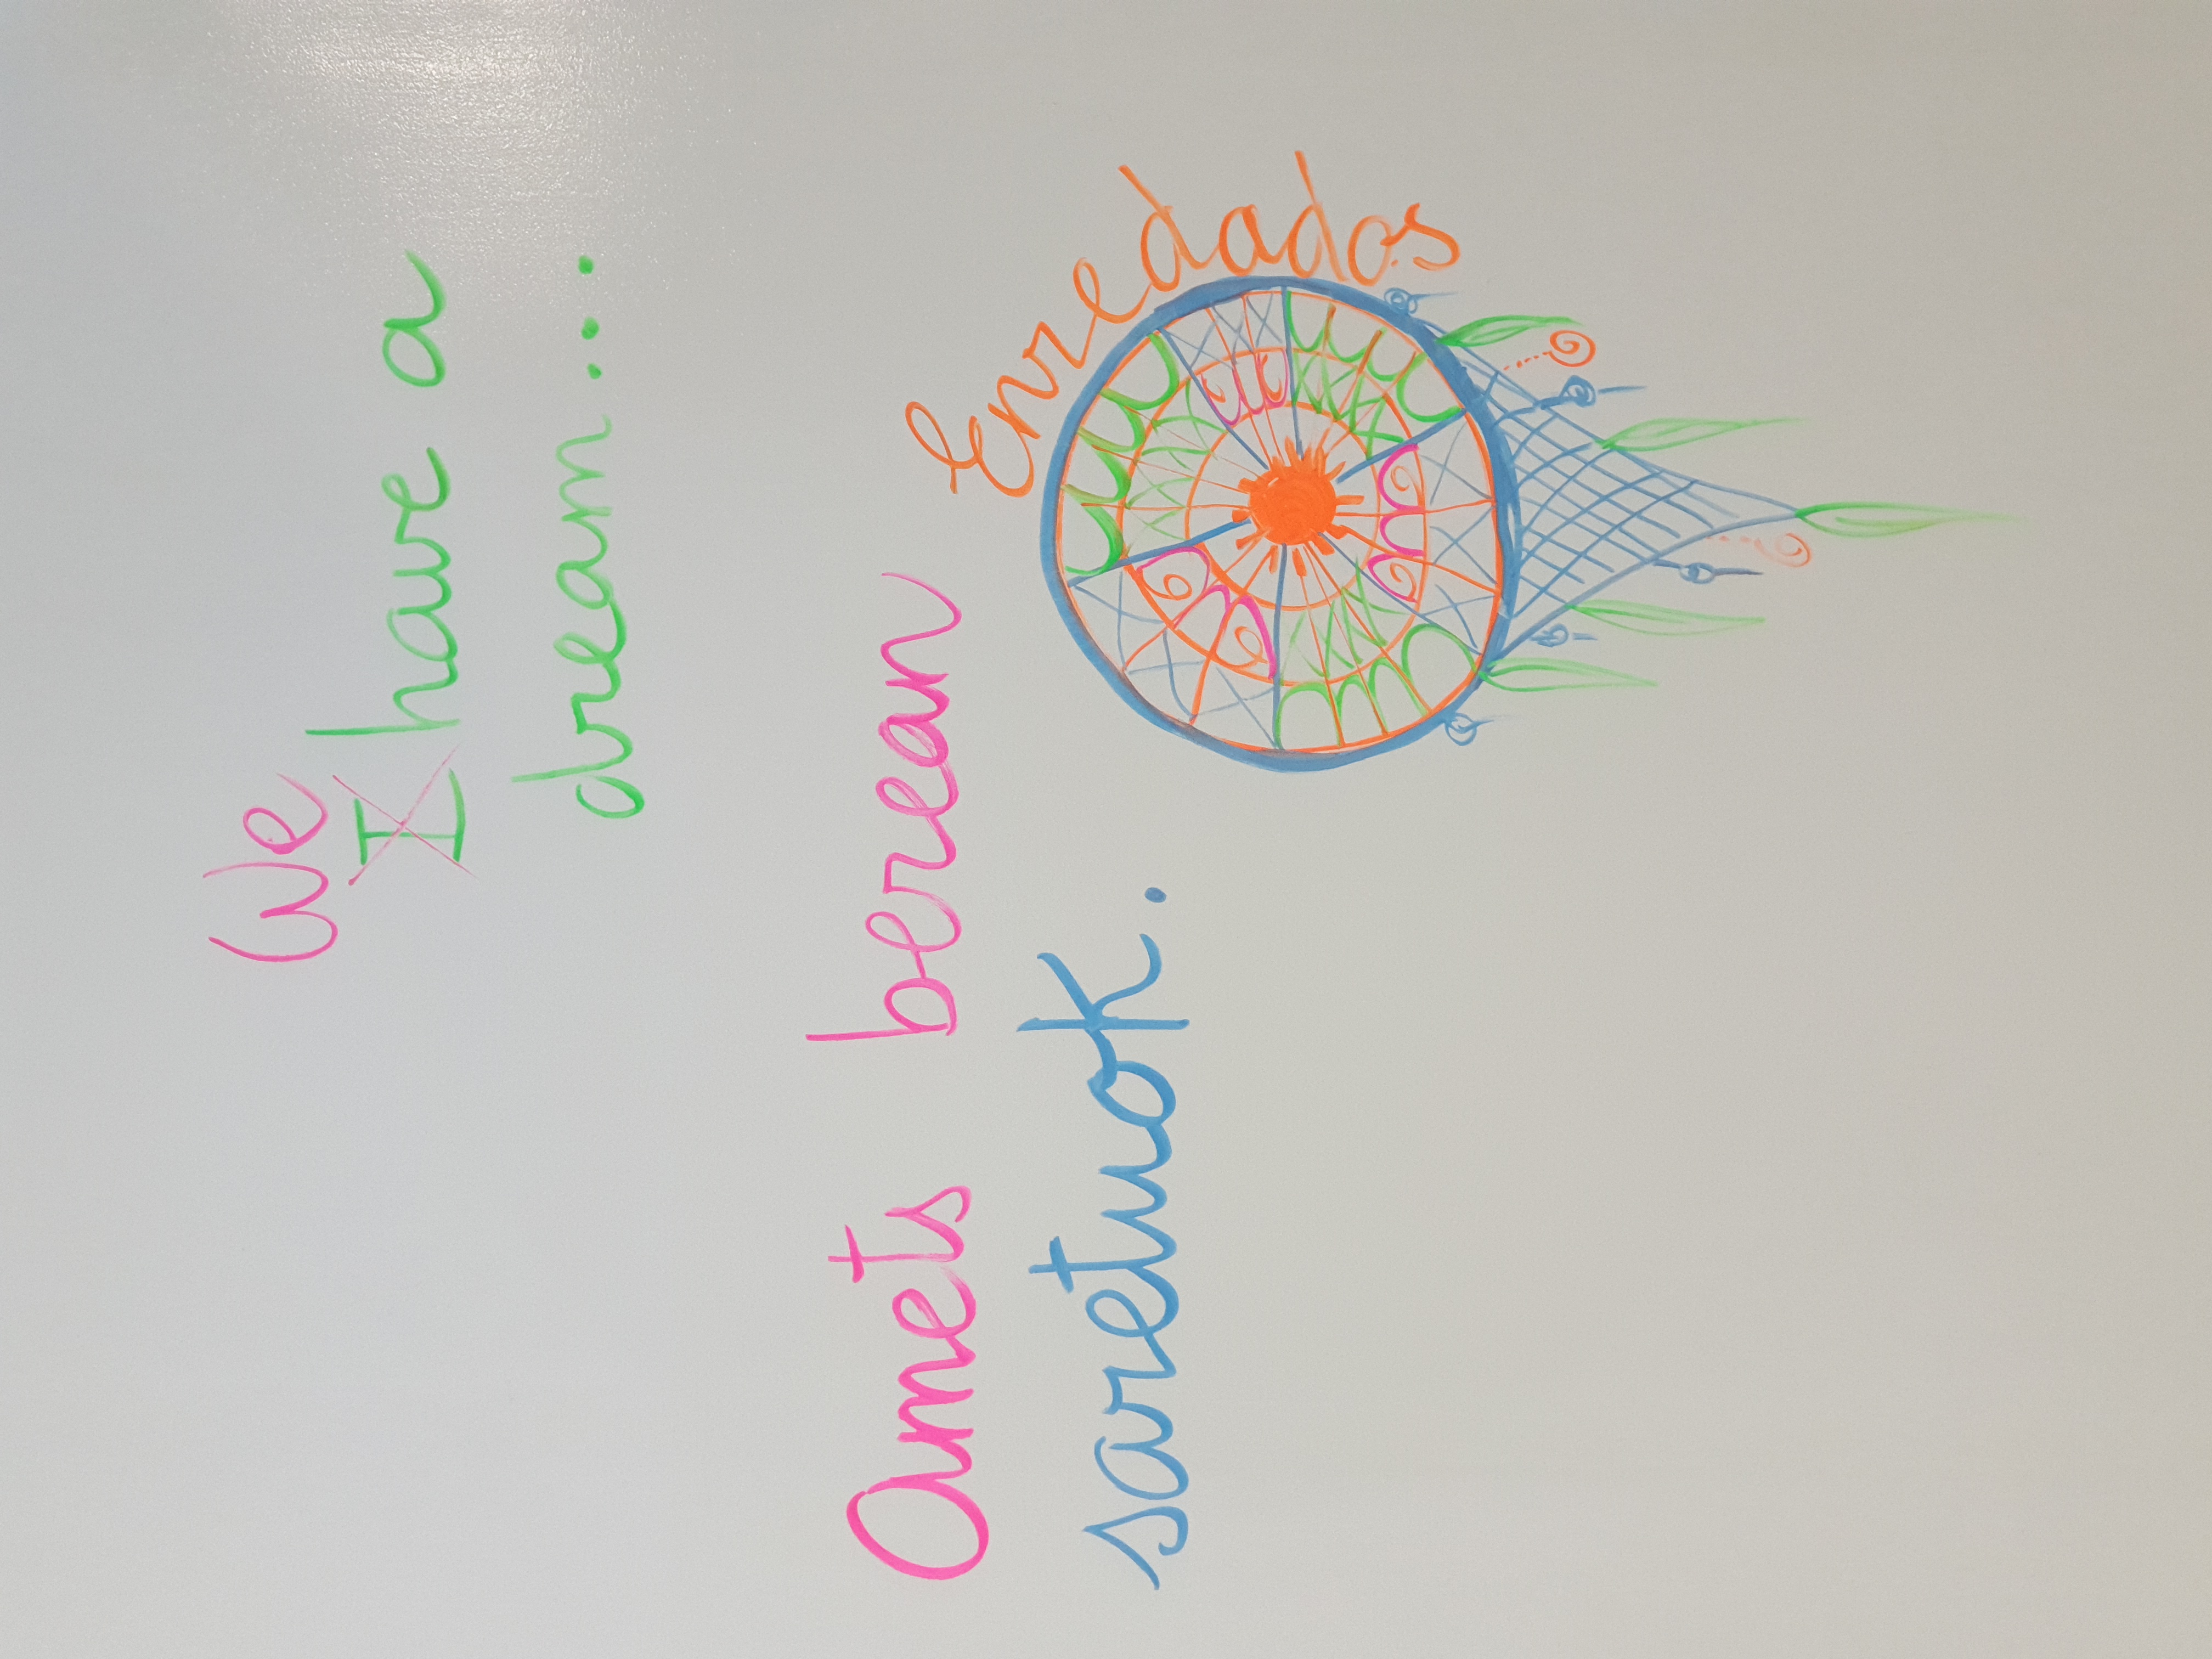 We
I have a
dream...
Amets berean
saretuok.
Enredados